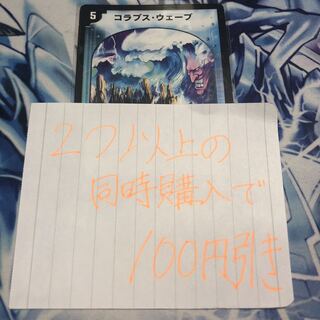 5 コラプス・ウェーブ
2つ以上の
同時購入で
100円引き